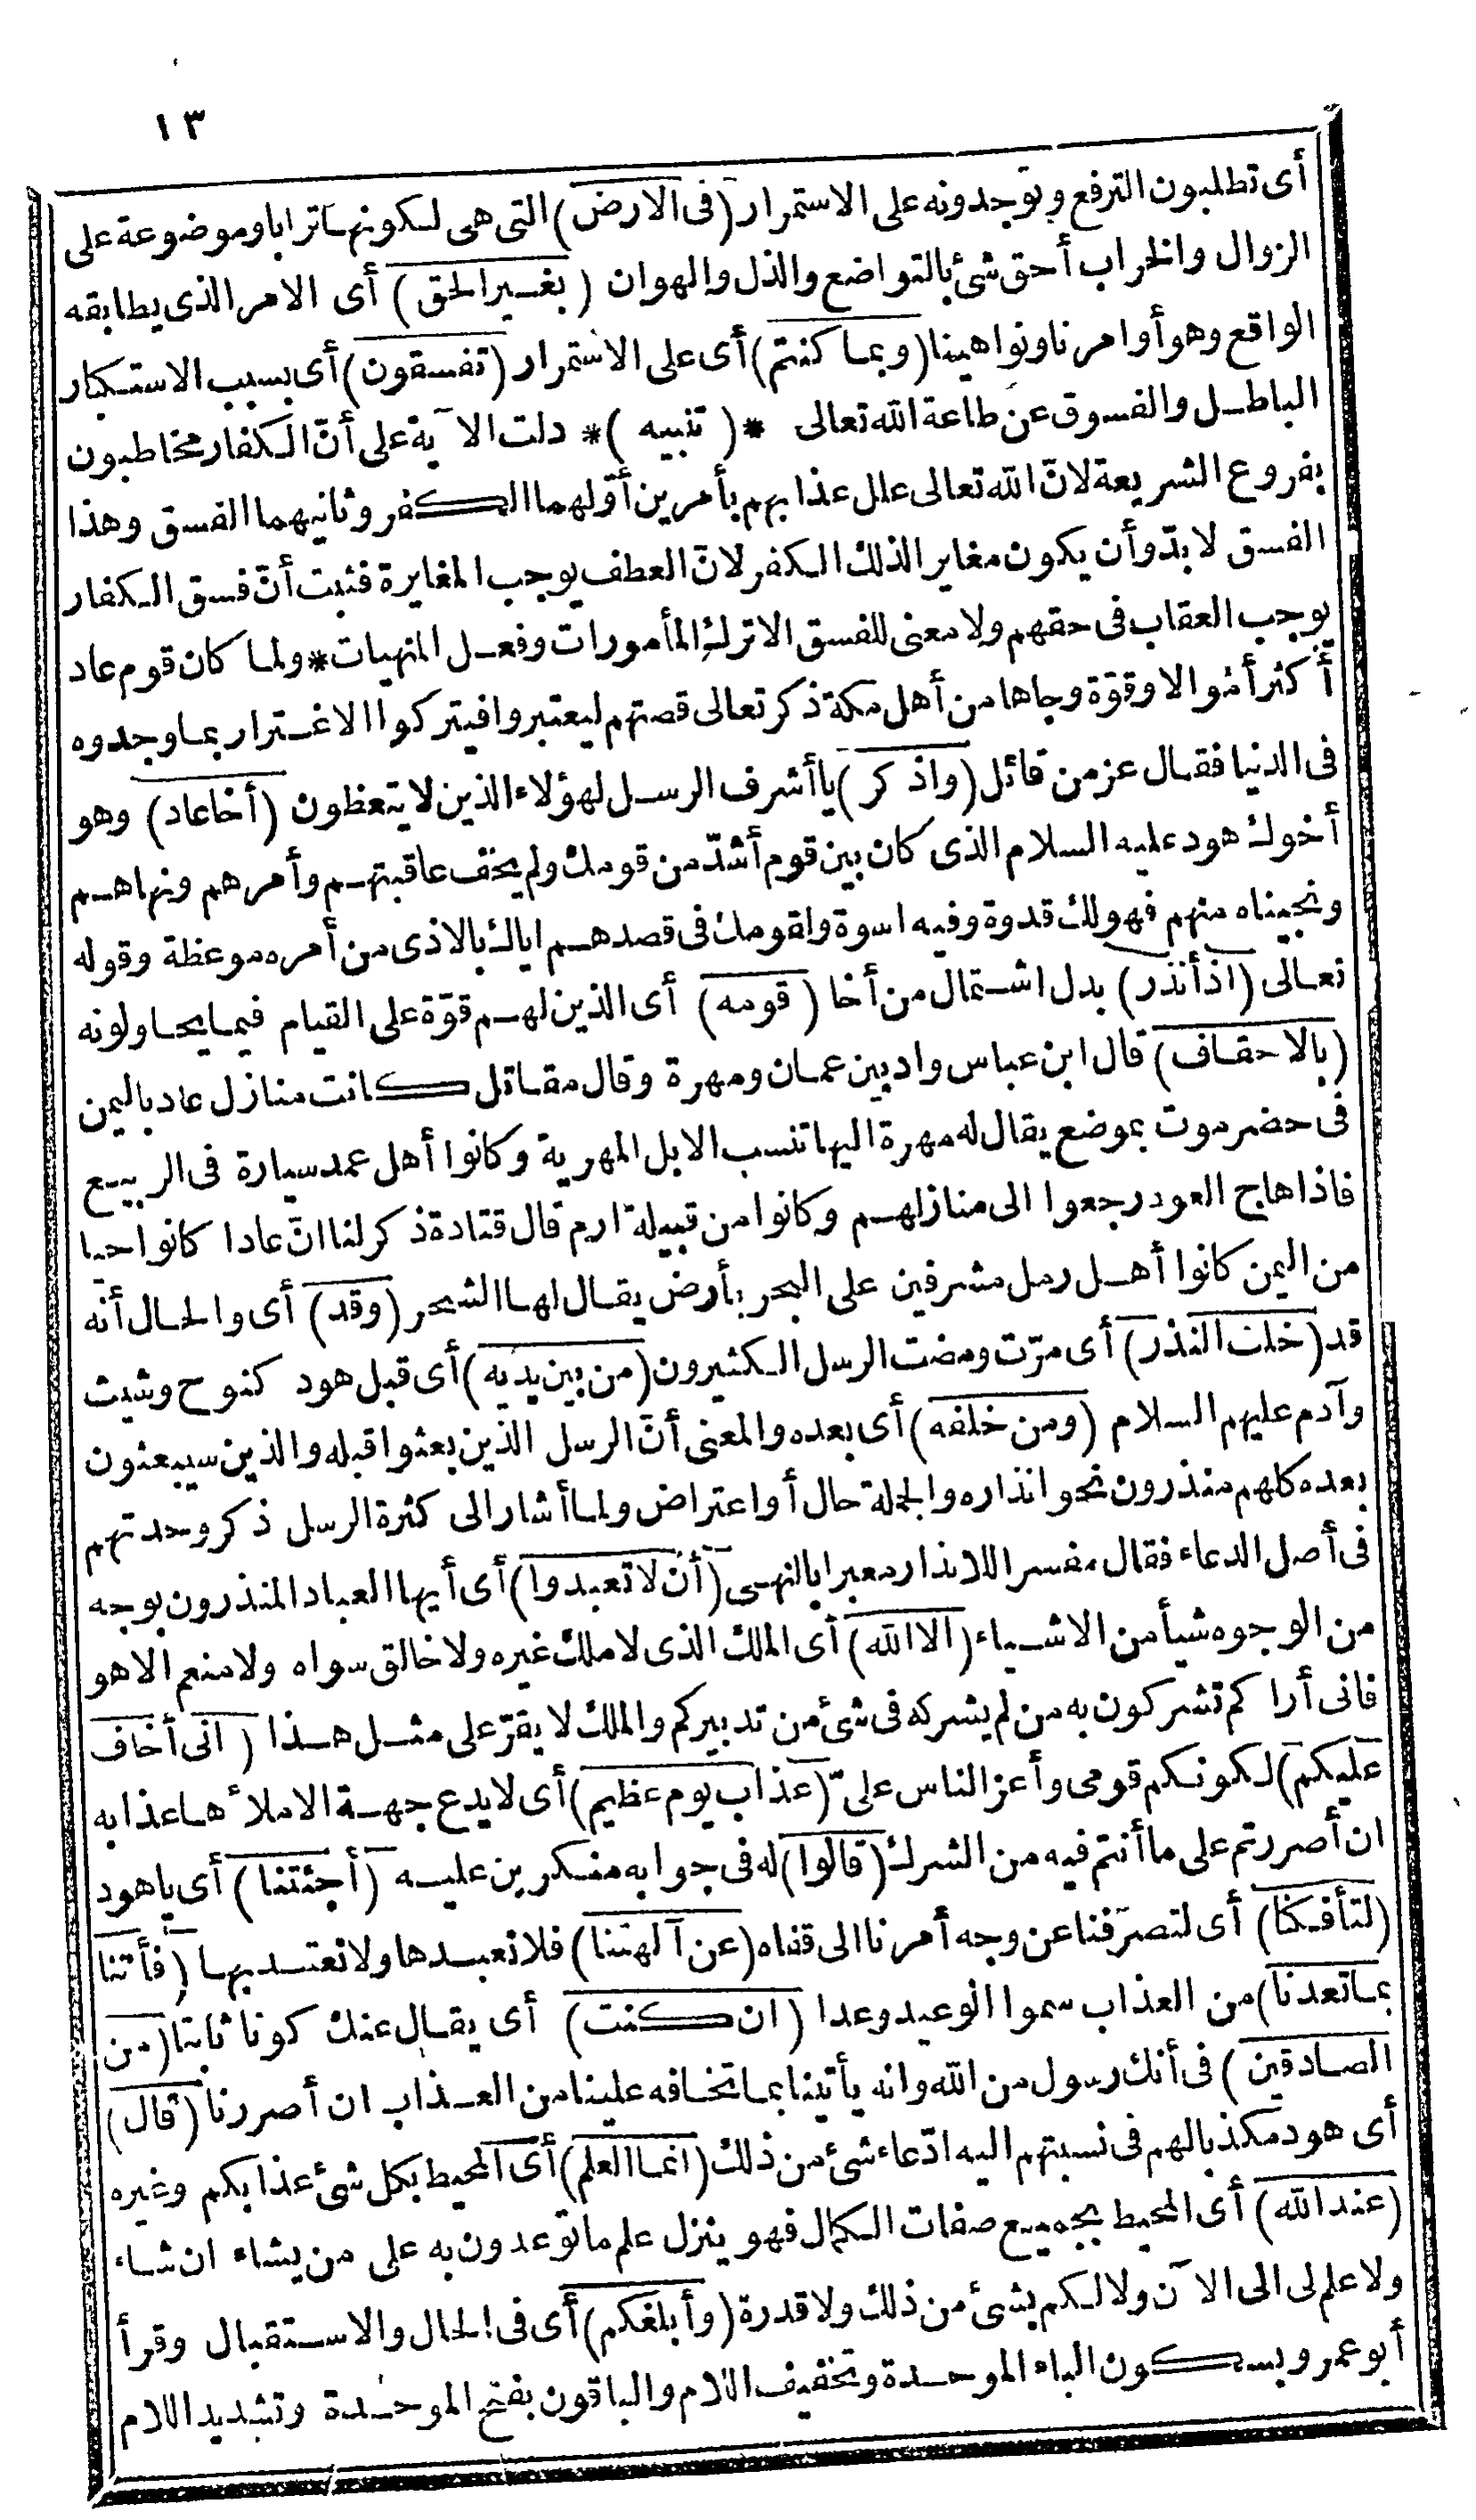 ١٣
أى تطلبون الترفع وتوجدونه على الاستمرار (فى الارض) التى هى لكونها ترابا وموضوعة على
الزوال والخراب أحق شئ بالتواضع والذل والهوان (بغير الحق) أى الامر الذى يطابقه
الواقع وهو أوامرنا ونواهينا (وبما كنتم) أى على الاستمرار (تفسقون) أى بسبب الاستكبار
الباطل والفسوق عن طاعة الله تعالى *(تنبيه)* دلت الآية على أنّ الكفار مخاطبون
بفروع الشريعة لانّ الله تعالى علل عذابهم بأمرين أوّلهما الكفر وثانيهما الفسق وهذا
الفسق لا بدّ وأن يكون مغايرا لذلك الكفر لانّ العطف يوجب المغايرة فثبت أنّ فسق الكفار
يوجب العقاب فى حقهم ولا معنى للفسق الا ترك المأمورات وفعل المنهيات * ولما كان قوم عاد
أكثر أموالا وقوّة وجاها من أهل مكة ذكر تعالى قصتهم ليعتبروا فيتركوا الاغترار بما وجدوه
فى الدنيا فقال عز من قائل (واذكر) يا أشرف الرسل لهؤلاء الذين لا يتعظون (أخا عاد) وهو
أخوك هود عليه السلام الذى كان بين قوم أشدّ من قومك ولم يخف عاقبتهم وأمرهم ونهاهم
ونجيناه منهم فهو لك قدوة وفيه اسوة ولقومك فى قصدهم اياك بالاذى من أمره موعظة وقوله
تعالى (اذ أنذر) بدل اشتمال من أخا (قومه) أى الذين لهم قوّة على القيام فيما يحاولونه
(بالاحقاف) قال ابن عباس واد بين عمان ومهرة وقال مقاتل كانت منازل عاد باليمن
فى حضرموت بموضع يقال له مهرة اليها تنسب الابل المهرية وكانوا أهل عمد سيارة فى الربيع
فاذا هاج العود رجعوا الى منازلهم وكانوا من قبيلة ارم قال قتادة ذكر لنا انّ عادا كانوا حيا
من اليمن كانوا أهل رمل مشرفين على البحر بأرض يقال لها الشحر (وقد) أى والحال أنه
قد (خلت النذر) أى مرّت ومضت الرسل الكثيرون (من بين يديه) أى قبل هود كنوح وشيث
وآدم عليهم السلام (ومن خلفه) أى بعده والمعنى أنّ الرسل الذين بعثوا قبله والذين سيبعثون
بعده كلهم منذرون نحو انذاره والجملة حال أو اعتراض ولما أشار الى كثرة الرسل ذكر وحدتهم
فى أصل الدعاء فقال مفسرا للانذار معبرا بالنهى (أن لا تعبدوا) أى أيها العباد المنذرون بوجه
من الوجوه شيأ من الاشياء (الا الله) أى الملك الذى لا ملك غيره ولا خالق سواه ولا منعم الا هو
فانى أراكم تشركون به من لم يشركه فى شئ من تدبيركم والملك لا يقرّ على مثل هذا (انى أخاف
عليكم) لكونكم قومى وأعز الناس علىّ (عذاب يوم عظيم) أى لا يدع جهة الا ملأها عذابه
ان أصررتم على ما أنتم فيه من الشرك (قالوا) له فى جوابه منكرين عليه (أجئتنا) أى يا هود
(لتأفكنا) أى لتصرّفنا عن وجه أمرنا الى قفاه (عن آلهتنا) فلا نعبدها ولا نعتد بها (فأتنا
بما تعدنا) من العذاب سموا الوعيد وعدا (ان كنت) أى يقال عنك كونا ثابتا (من
الصادقين) فى أنك رسول من الله وانه يأتينا بما تخافه علينا من العذاب ان أصررنا (قال)
أى هود مكذبا لهم فى نسبتهم اليه ادّعاء شئ من ذلك (انما العلم) أى المحيط بكل شئ عذابكم وغيره
(عند الله) أى المحيط بجميع صفات الكمال فهو ينزل علم ما توعدون به على من يشاء ان شاء
ولا علم لى الى الآن ولا لكم بشئ من ذلك ولا قدرة (وأبلغكم) أى فى الحال والاستقبال وقرأ
أبو عمرو بسكون الباء الموحدة وتخفيف اللام والباقون بفتح الموحدة وتشديد اللام